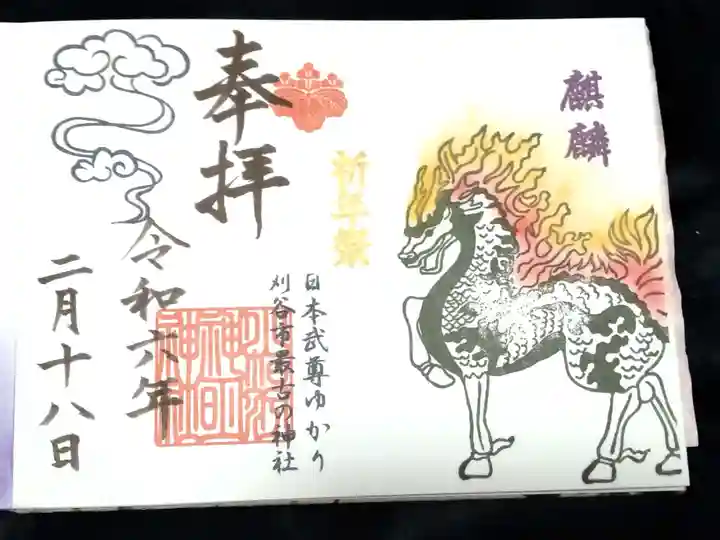 麒麟
祈年祭
日本武尊ゆかり
刈谷市最古の神社
奉拝
令和六年
二月十八日